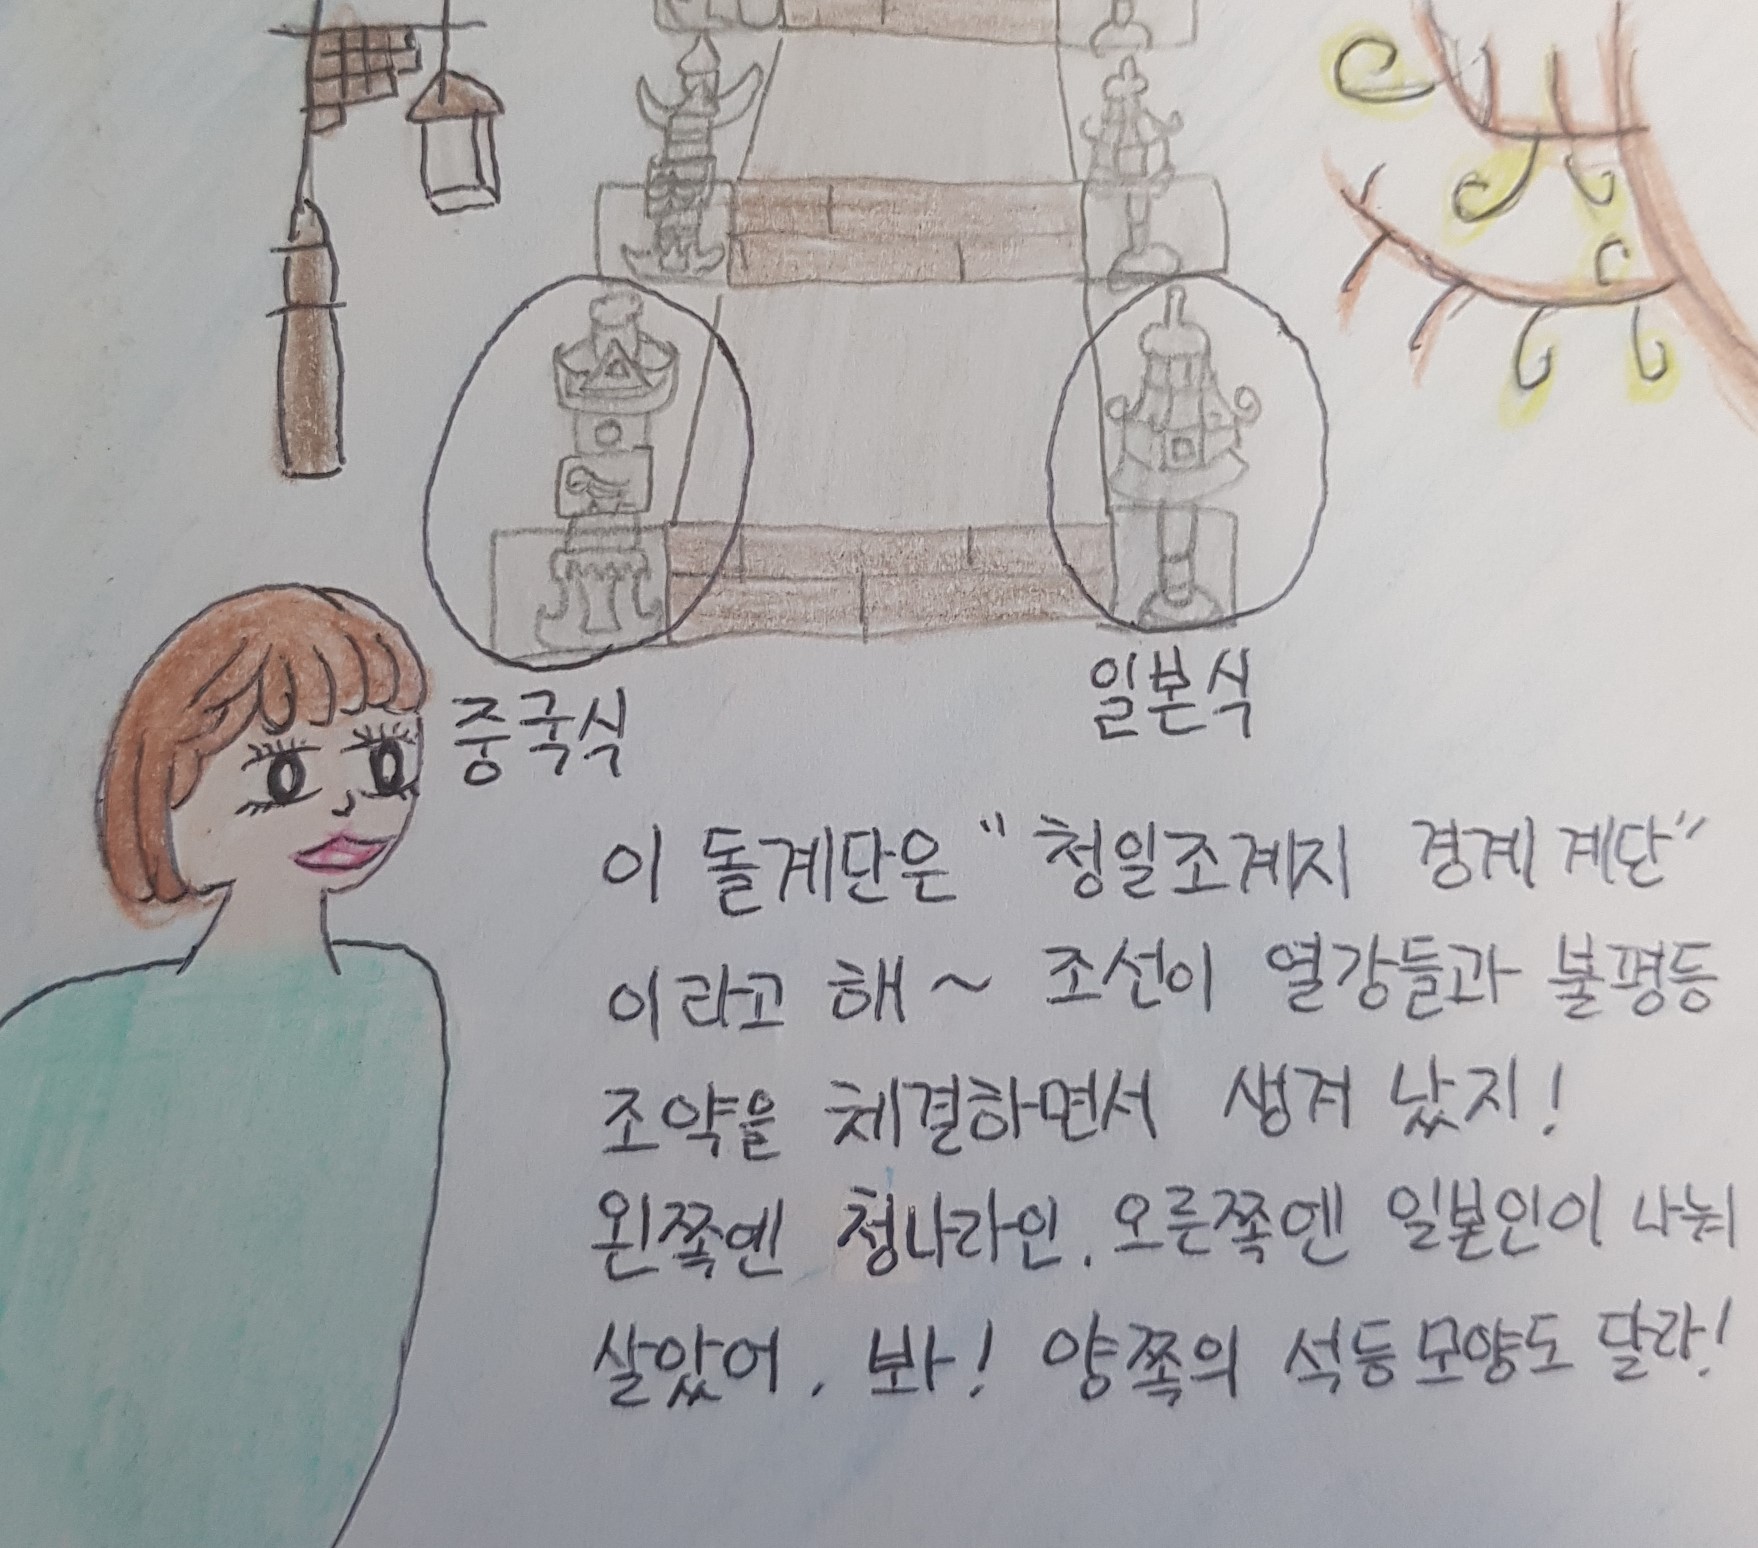 중국식
일본식
이 돌계단은 "청일조계지 경계 계단"
이라고 해~ 조선이 열강들과 불평등
조약을 체결하면서 생겨 났지!
왼쪽엔 청나라인, 오른쪽엔 일본인이 나눠
살았어. 봐! 양쪽의 석등모양도 달라!